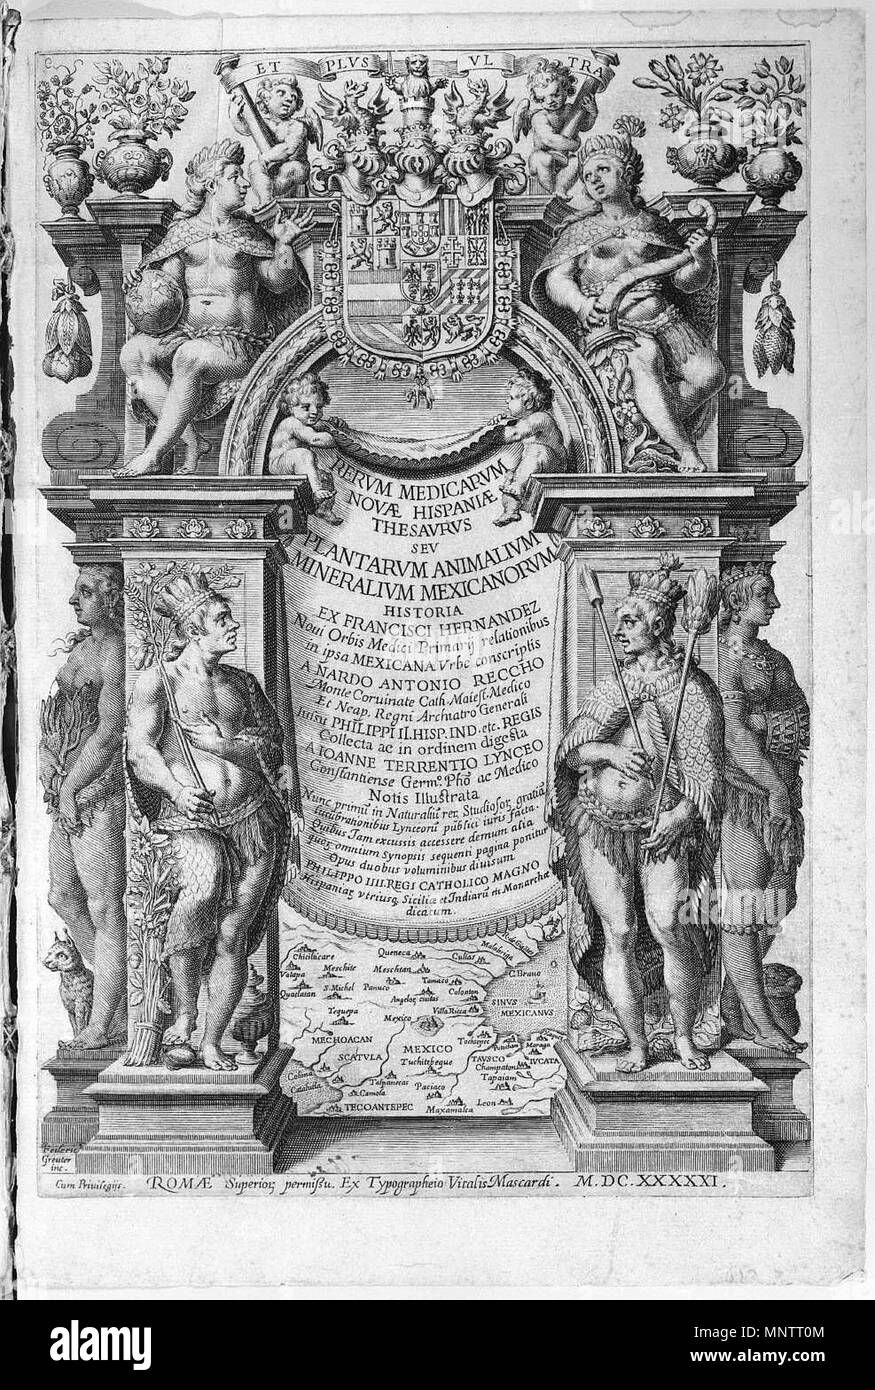 ET PLVS VL TRA
RERVM MEDICARVM
NOVÆ HISPANIÆ
THESAVRVS
SEV
PLANTARVM ANIMALIVM
MINERALIVM MEXICANORVM
HISTORIA
EX FRANCISCI HERNANDEZ
Noui Orbis Medici Primarij relationibus
in ipsa MEXICANA Vrbe conscriptis
A NARDO ANTONIO RECCHO
Monte Coruinate Cath. Maiest. Medico
Et Neap. Regni Archiatro Generali
Iussu PHILIPPI II. HISP. IND. etc. REGIS
Collecta ac in ordinem digesta
A IOANNE TERRENTIO LYNCEO
Constantiense Germº. Phõ ac Medico
Notis Illustrata
Nunc primū in Naturaliū rer. Studiosor gratiā
lucubrationibus Lynceorū publici iuris facta.
Quibus Jam excussis accessere demum alia
quor omnium Synopsis sequenti pagina ponitur
Opus duobus voluminibus diuisum
PHILIPPO IIII. REGI CATHOLICO MAGNO
Hispaniar vtriusq Siciliæ et Indiarū etc Monarchæ
dicatum.
Chichicare Queneca Cullas
Valapa Meschite Meschtan C. Brauo
S. Michel Panuco Tamaco
Qualatan Angelor ciuitas Colontan SINVS
Yeguepa Mexico Villa Ricca MEXICANVS
MECHOACAN MEXICO
SCATVLA Tuchitbeque TAVSCO IVCATA
Colima Champaton
Talpanecas Paciaco Tapaiam
Camola
TECOANTEPEC Maxamalca Leon
Federic
Greuter
inc.
Cum Priuilegijs. ROMÆ Superior permissu. Ex Typographeio Vitalis Mascardi. M. DC. XXXXXI.
alamy
alamy stock photo
Image ID: MNTT0M
www.alamy.com